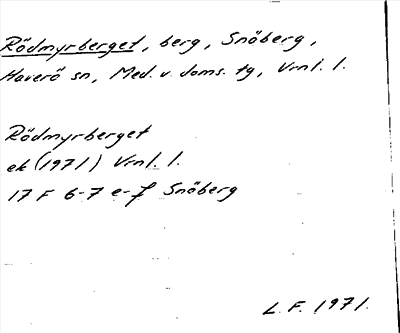 Rödmyrberget, berg, Snöberg,
Haverö sn, Med. v. doms. tg, Vrnl. l.
Rödmyrberget
ek (1971) Vrnl. l.
17 F 6-7 e-f Snöberg
L. F. 1971.